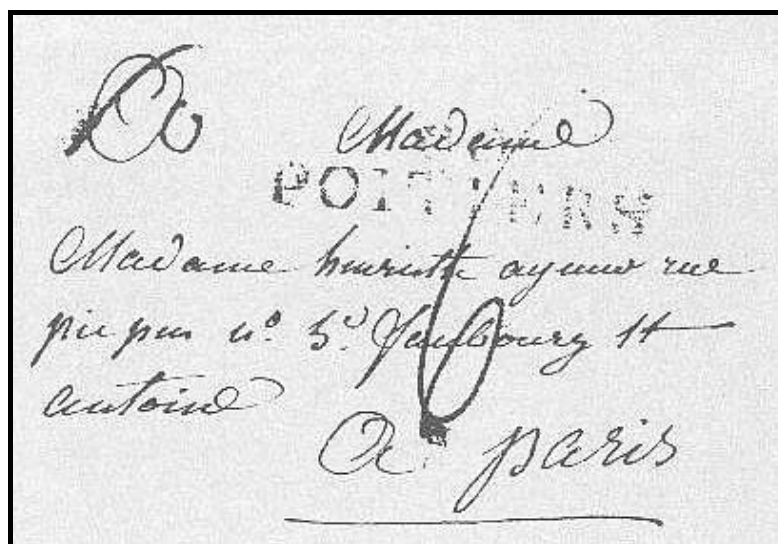 A Madame
POITIERS
Madame henriette aymer rue
pic pus n.º 5. faubourg st
antoine
6
A paris